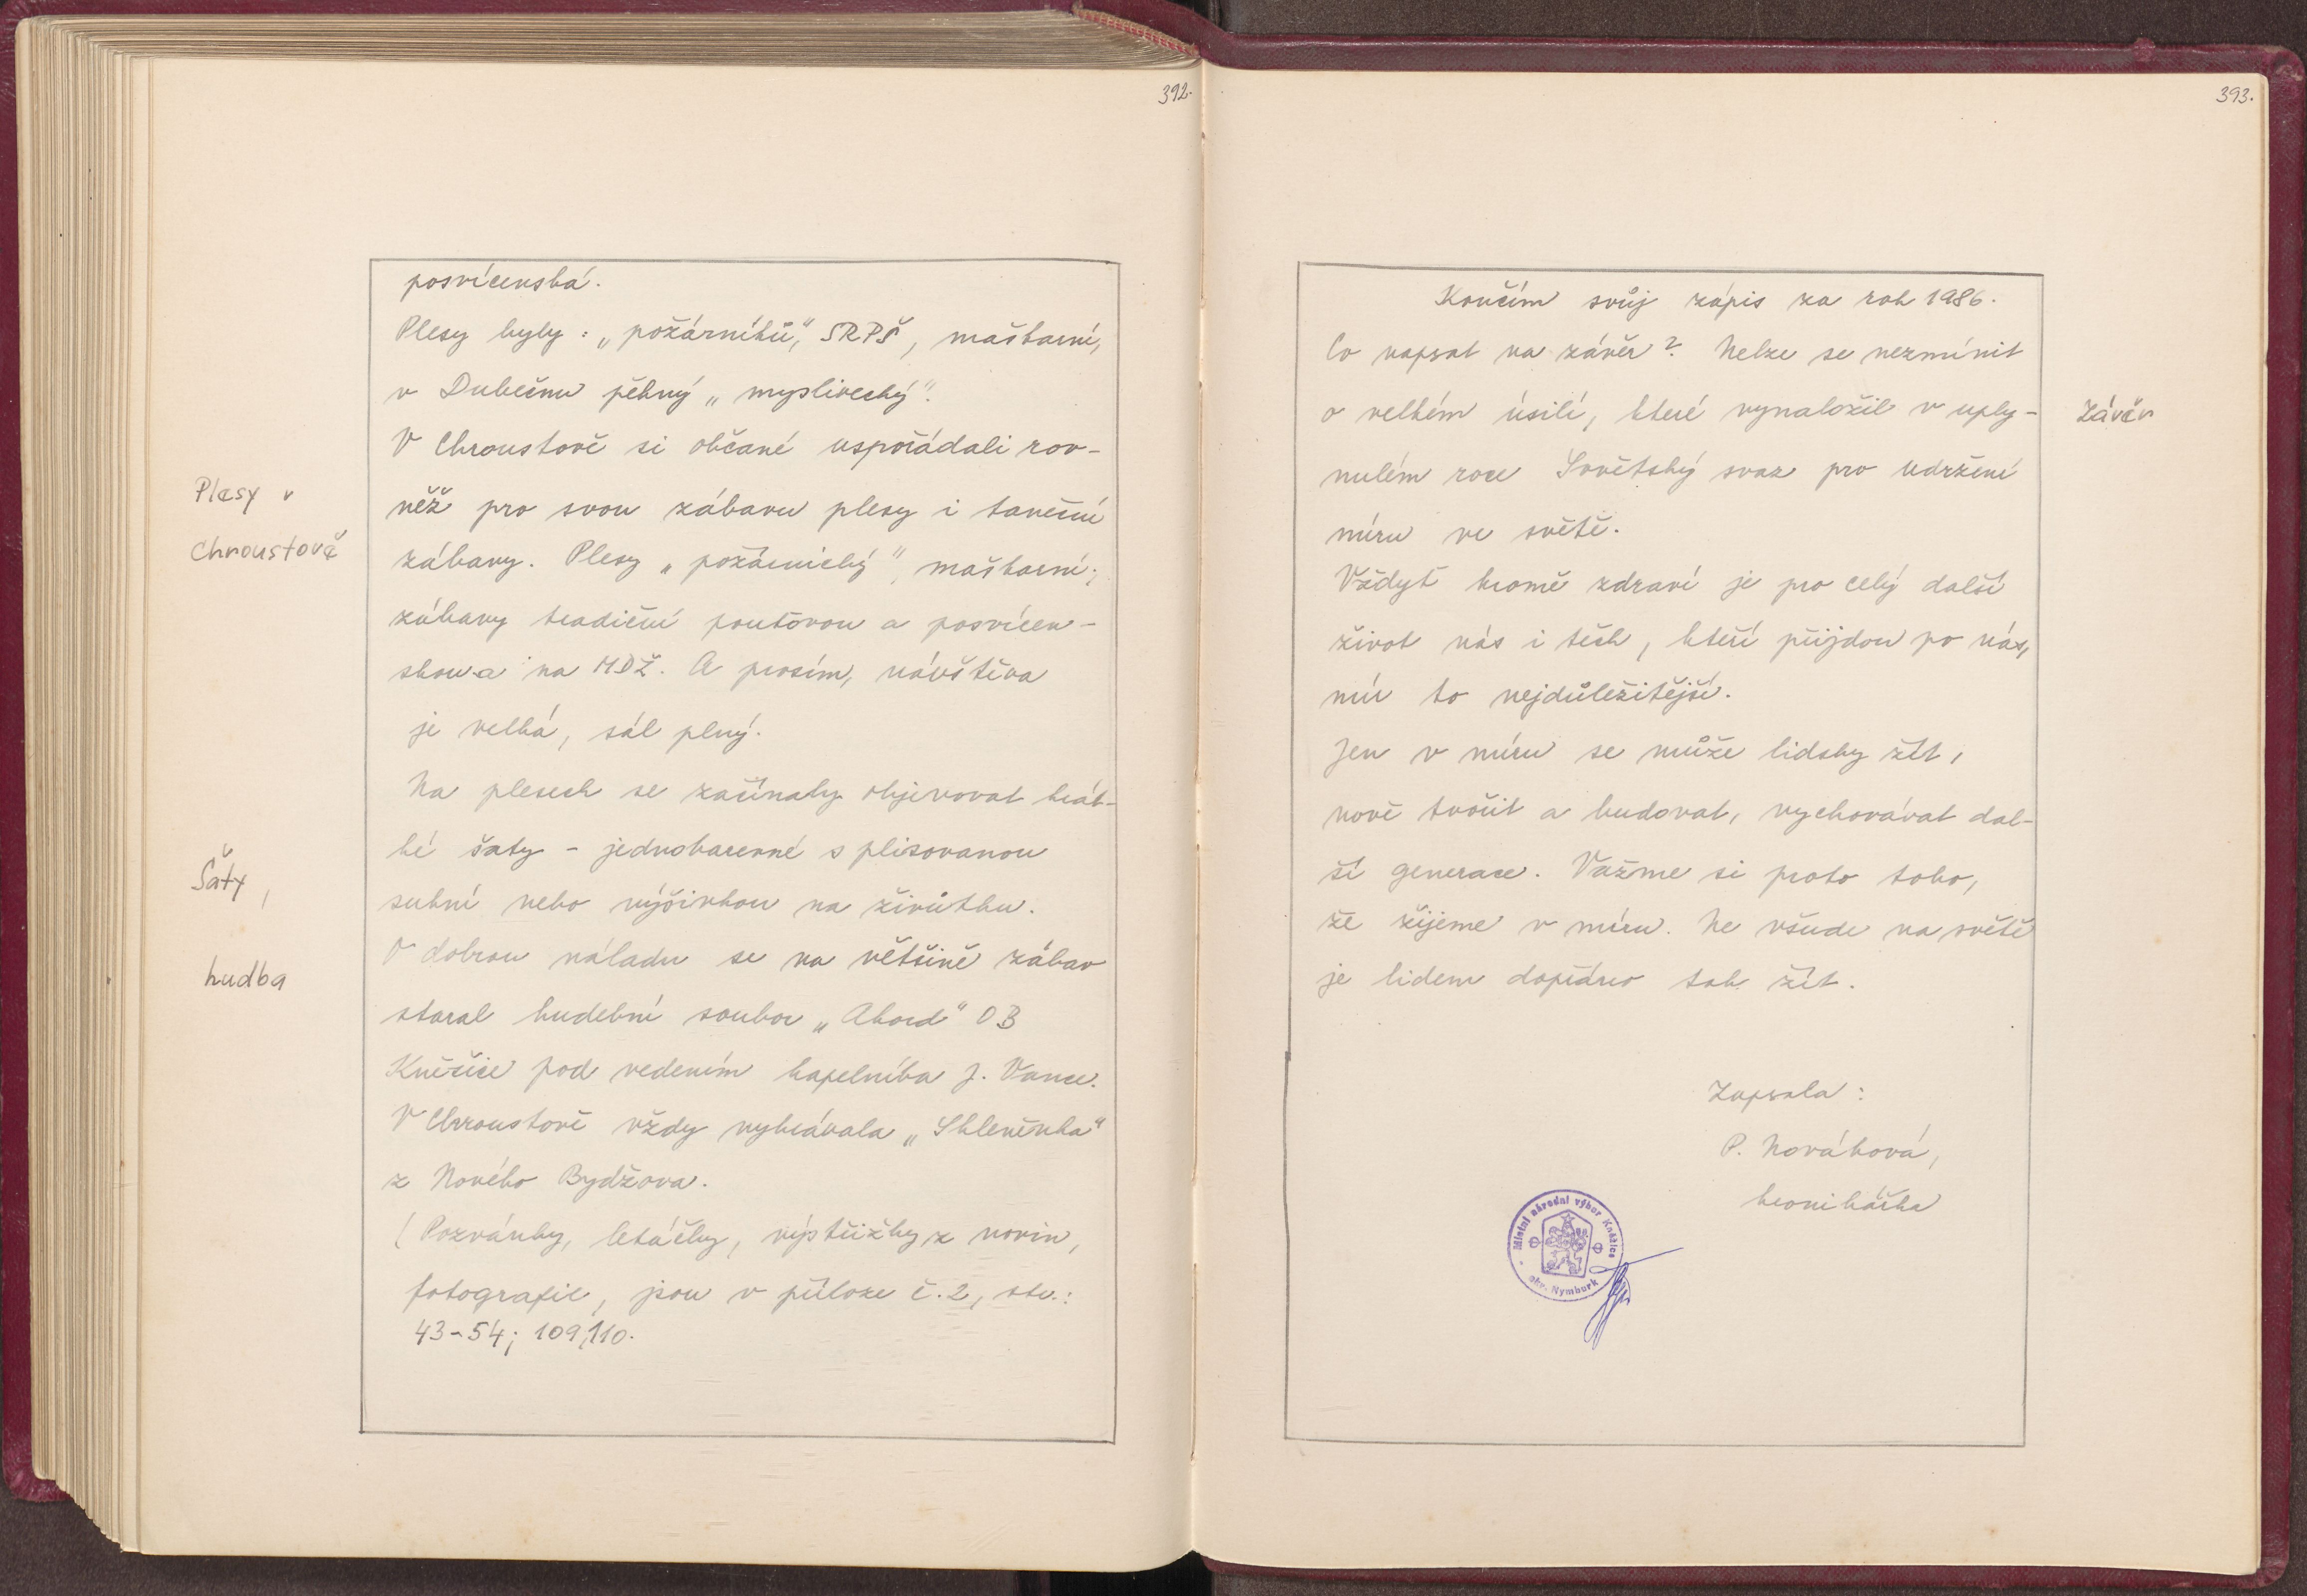 392.
posvícenská.
Plesy byly: „požárníků", SRPŠ, maškarní,
v Dubečnu pěkný „myslivecký".
V Chroustově si občané uspořádali rov-
Plesy v
něž pro svou zábavu plesy i taneční
Chroustově
zábavy. Plesy „požárnický", maškarní;
zábavy tradiční pouťovou a posvícen-
skou a na MDŽ. A prosím, návštěva
je velká, sál plný.
Na plesech se začínaly objevovat krát-
ké šaty - jednobarevné s plisovanou
Šaty,
sukní nebo výšivkou na živůtku.
V dobrou náladu se na většině zábav
hudba
staral hudební soubor „Akord" OB
Kněžice pod vedením kapelníka J. Vance.
V Chroustově vždy vyhrávala „Skleněnka"
z Nového Bydžova.
(Pozvánky, letáčky, výstřižky z novin,
fotografie, jsou v příloze č. 2, str.:
43-54; 109,110.
393.
Končím svůj zápis za rok 1986.
Co napsat na závěr? Nelze se nezmínit
o velkém úsilí, které vynaložil v uply-
Závěr
nulém roce Sovětský svaz pro udržení
míru ve světě.
Vždyť kromě zdraví je pro celý další
život nás i těch, kteří přijdou po nás,
mír to nejdůležitější.
Jen v míru se může lidsky žít,
nově tvořit a budovat, vychovávat dal-
ší generace. Važme si proto toho,
že žijeme v míru. Ne všude na světě
je lidem dopřáno tak žít.
Zapsala:
P. Nováková,
kronikářka
Místní národní výbor Kněžice
okr. Nymburk